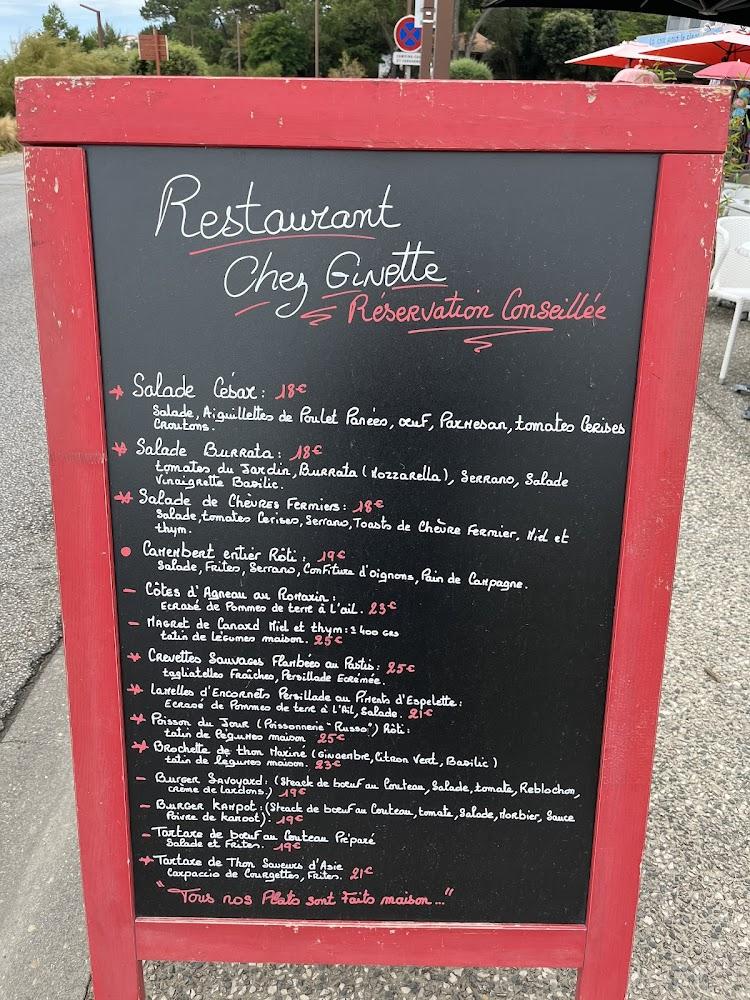 Restaurant
Chez Ginette
Réservation Conseillée
Salade César : 18€
Salade, Aiguillettes de Poulet Panées, œuf, Parmesan, tomates Cerises
Croutons.
Salade Burrata : 18€
tomates du Jardin, Burrata (Mozzarella), Serrano, Salade
Vinaigrette Basilic.
Salade de Chèvres Fermiers : 18€
Salade, tomates Cerises, Serrano, Toasts de Chèvre Fermier, Miel et
thym.
Camembert entier Rôti : 19€
Salade, Frites, Serrano, Confiture d'oignons, Pain de Campagne.
- Côtes d'Agneau au Romarin :
Ecrasé de Pommes de terre à l'ail. 23€
- Magret de Canard Miel et thym : ± 400 grs
tatin de légumes maison. 25€
Crevettes Sauvages Flambées au Pastis : 25€
tagliatelles Fraîches, Persillade Ecrémée.
Lamelles d'Encornets Persillade au Piments d'Espelette :
Ecrasé de Pommes de terre à l'Ail, Salade. 21€
Poisson du Jour (Poissonnerie "Russo") Rôti :
tatin de légumes maison 25€
Brochette de thon Mariné (Gingembre, Citron Vert, Basilic)
tatin de légumes maison. 23€
- Burger Savoyard : (Steack de bœuf au Couteau, Salade, tomate, Reblochon,
crème de lardons.) 19€
- Burger Kampot : (Steack de bœuf au Couteau, tomate, Salade, Morbier, Sauce
Poivre de Kampot). 19€
- Tartare de bœuf au Couteau Préparé
Salade et Frites. 19€
Tartare de Thon Saveurs d'Asie
Carpaccio de Courgettes, Frites. 21€
"Tous nos Plats sont Faits maison..."